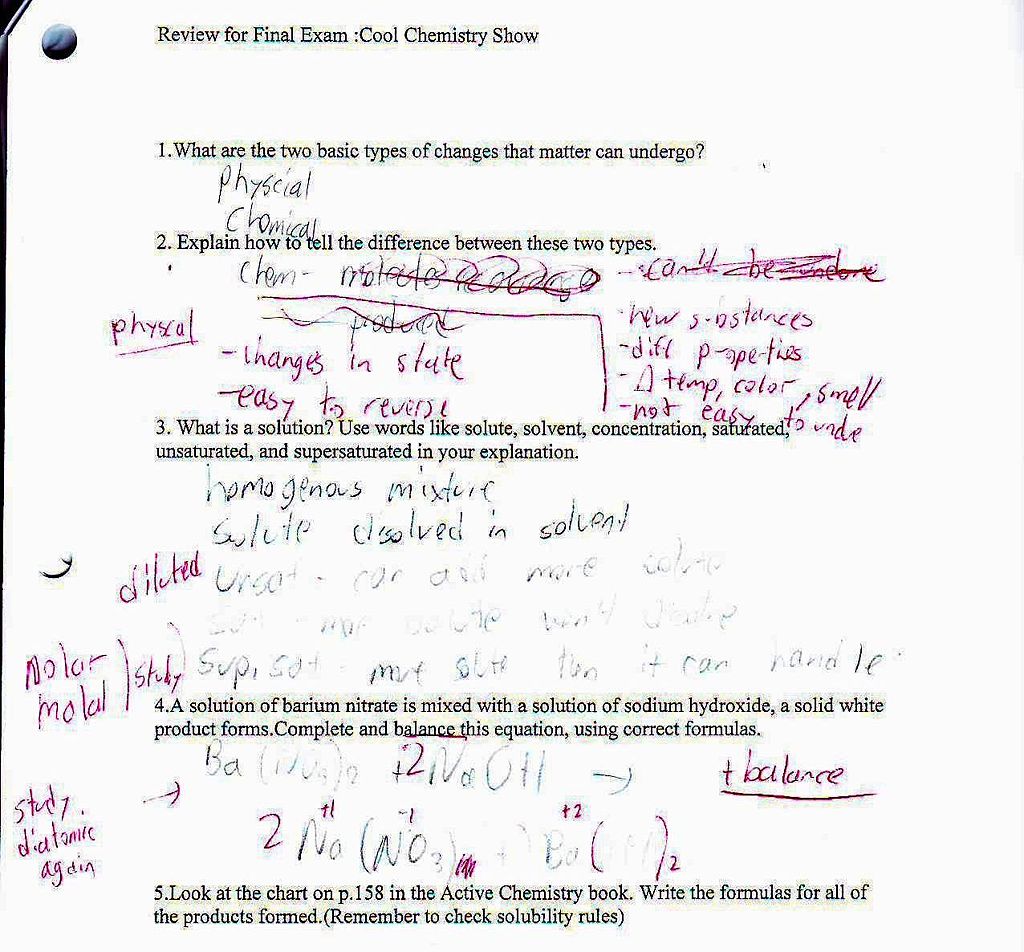 Review for Final Exam :Cool Chemistry Show
1.What are the two basic types of changes that matter can undergo?
Physcial
Chomical
2. Explain how to tell the difference between these two types.
Chem-
- can't be undone
product
physcal
- new substances
- changes in state
- diff properties
- easy to reverse
- Δ temp, color, smell
- not easy to unde
3. What is a solution? Use words like solute, solvent, concentration, saturated,
unsaturated, and supersaturated in your explanation.
homogenous mixture
Solute dissolved in solvent
diluted
Unsat - can add more solute
Sat - more solute won't dissolve
Molar
molal
study
Sup. sat - more slute than it can handle
4.A solution of barium nitrate is mixed with a solution of sodium hydroxide, a solid white
product forms.Complete and balance this equation, using correct formulas.
Ba(NO3)2 + 2NaOH →
+ balance
study
diatomic
again
→
+1 -1 +2
2 Na(NO3) + Ba(OH)2
5.Look at the chart on p.158 in the Active Chemistry book. Write the formulas for all of
the products formed.(Remember to check solubility rules)